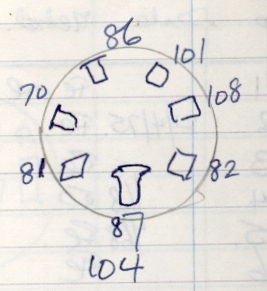 86
101
70
108
81
82
87
104